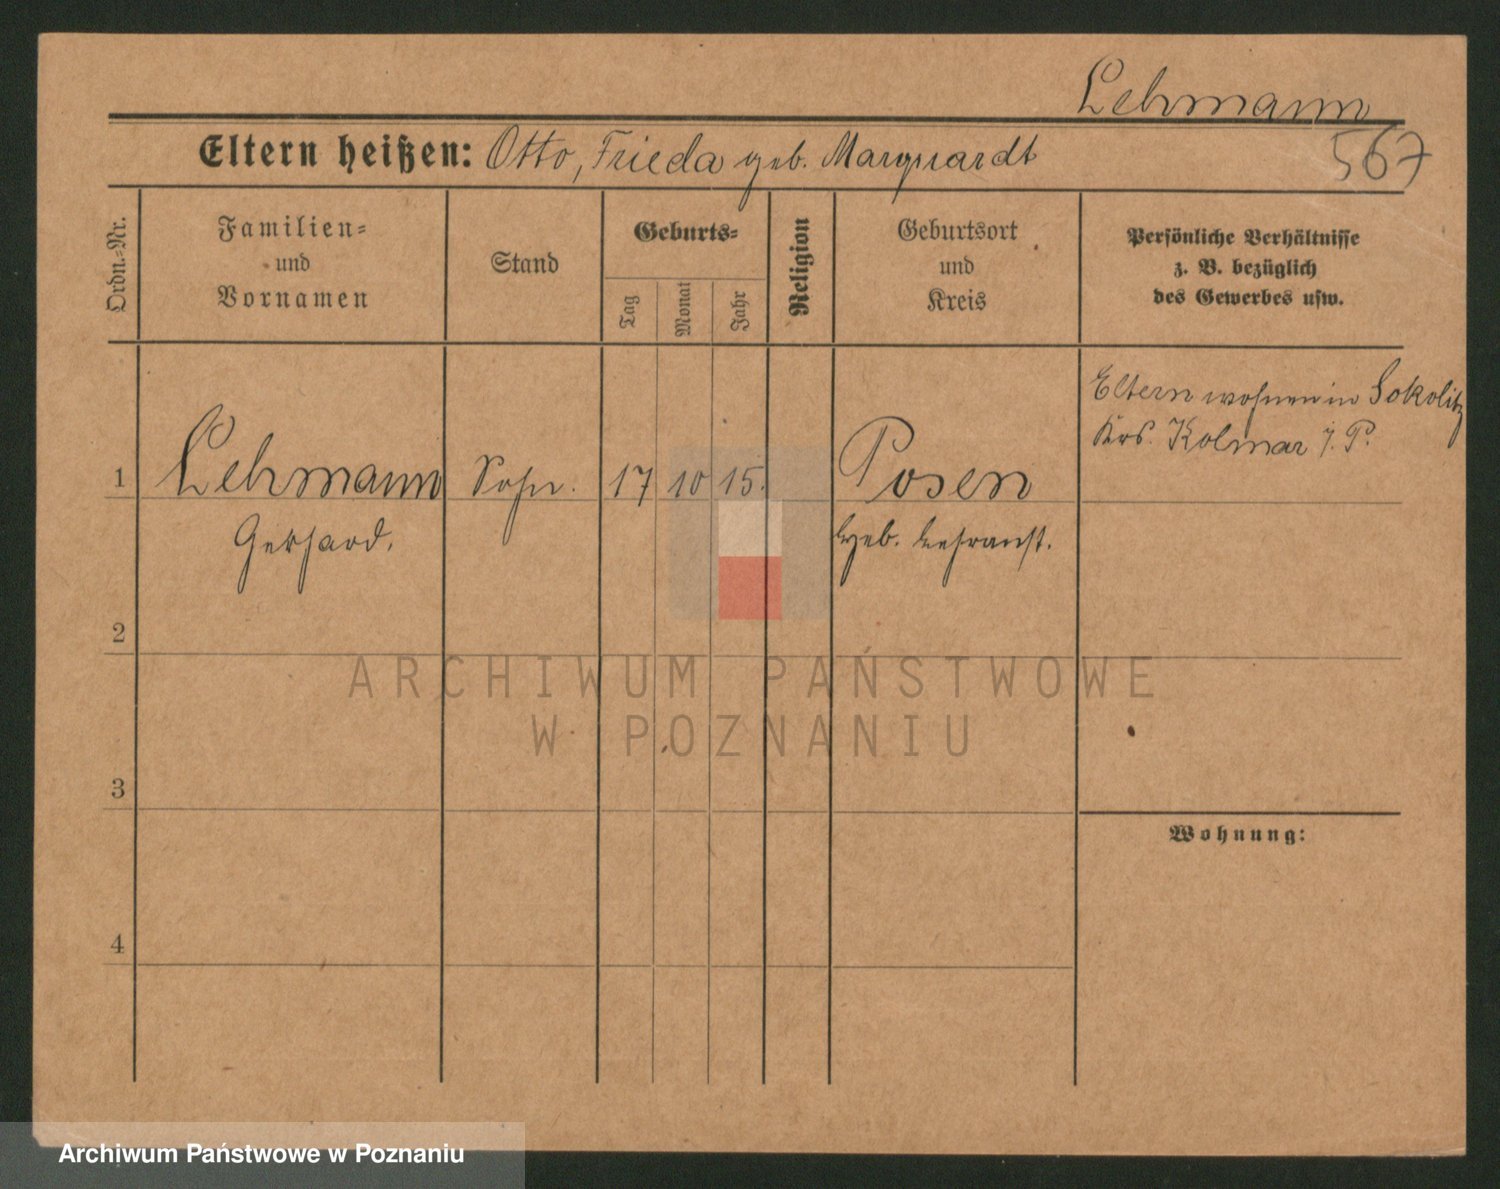 Lehmann
567
Eltern heißen: Otto, Frieda geb. Marquardt
Ordn.-Nr.
Familien-
und
Vornamen
Stand
Geburts-
Tag
Monat
Jahr
Religion
Geburtsort
und
Kreis
Persönliche Verhältnisse
z. B. bezüglich
des Gewerbes usw.
Eltern wohnen in Sokolitz
Krs. Kolmar i. P.
1 Lehmann Sohn. 17 10 15. Posen
Gerhard. Heb. Lehranst.
2
3
Wohnung:
4
ARCHIWUM PAŃSTWOWE
W POZNANIU
Archiwum Państwowe w Poznaniu